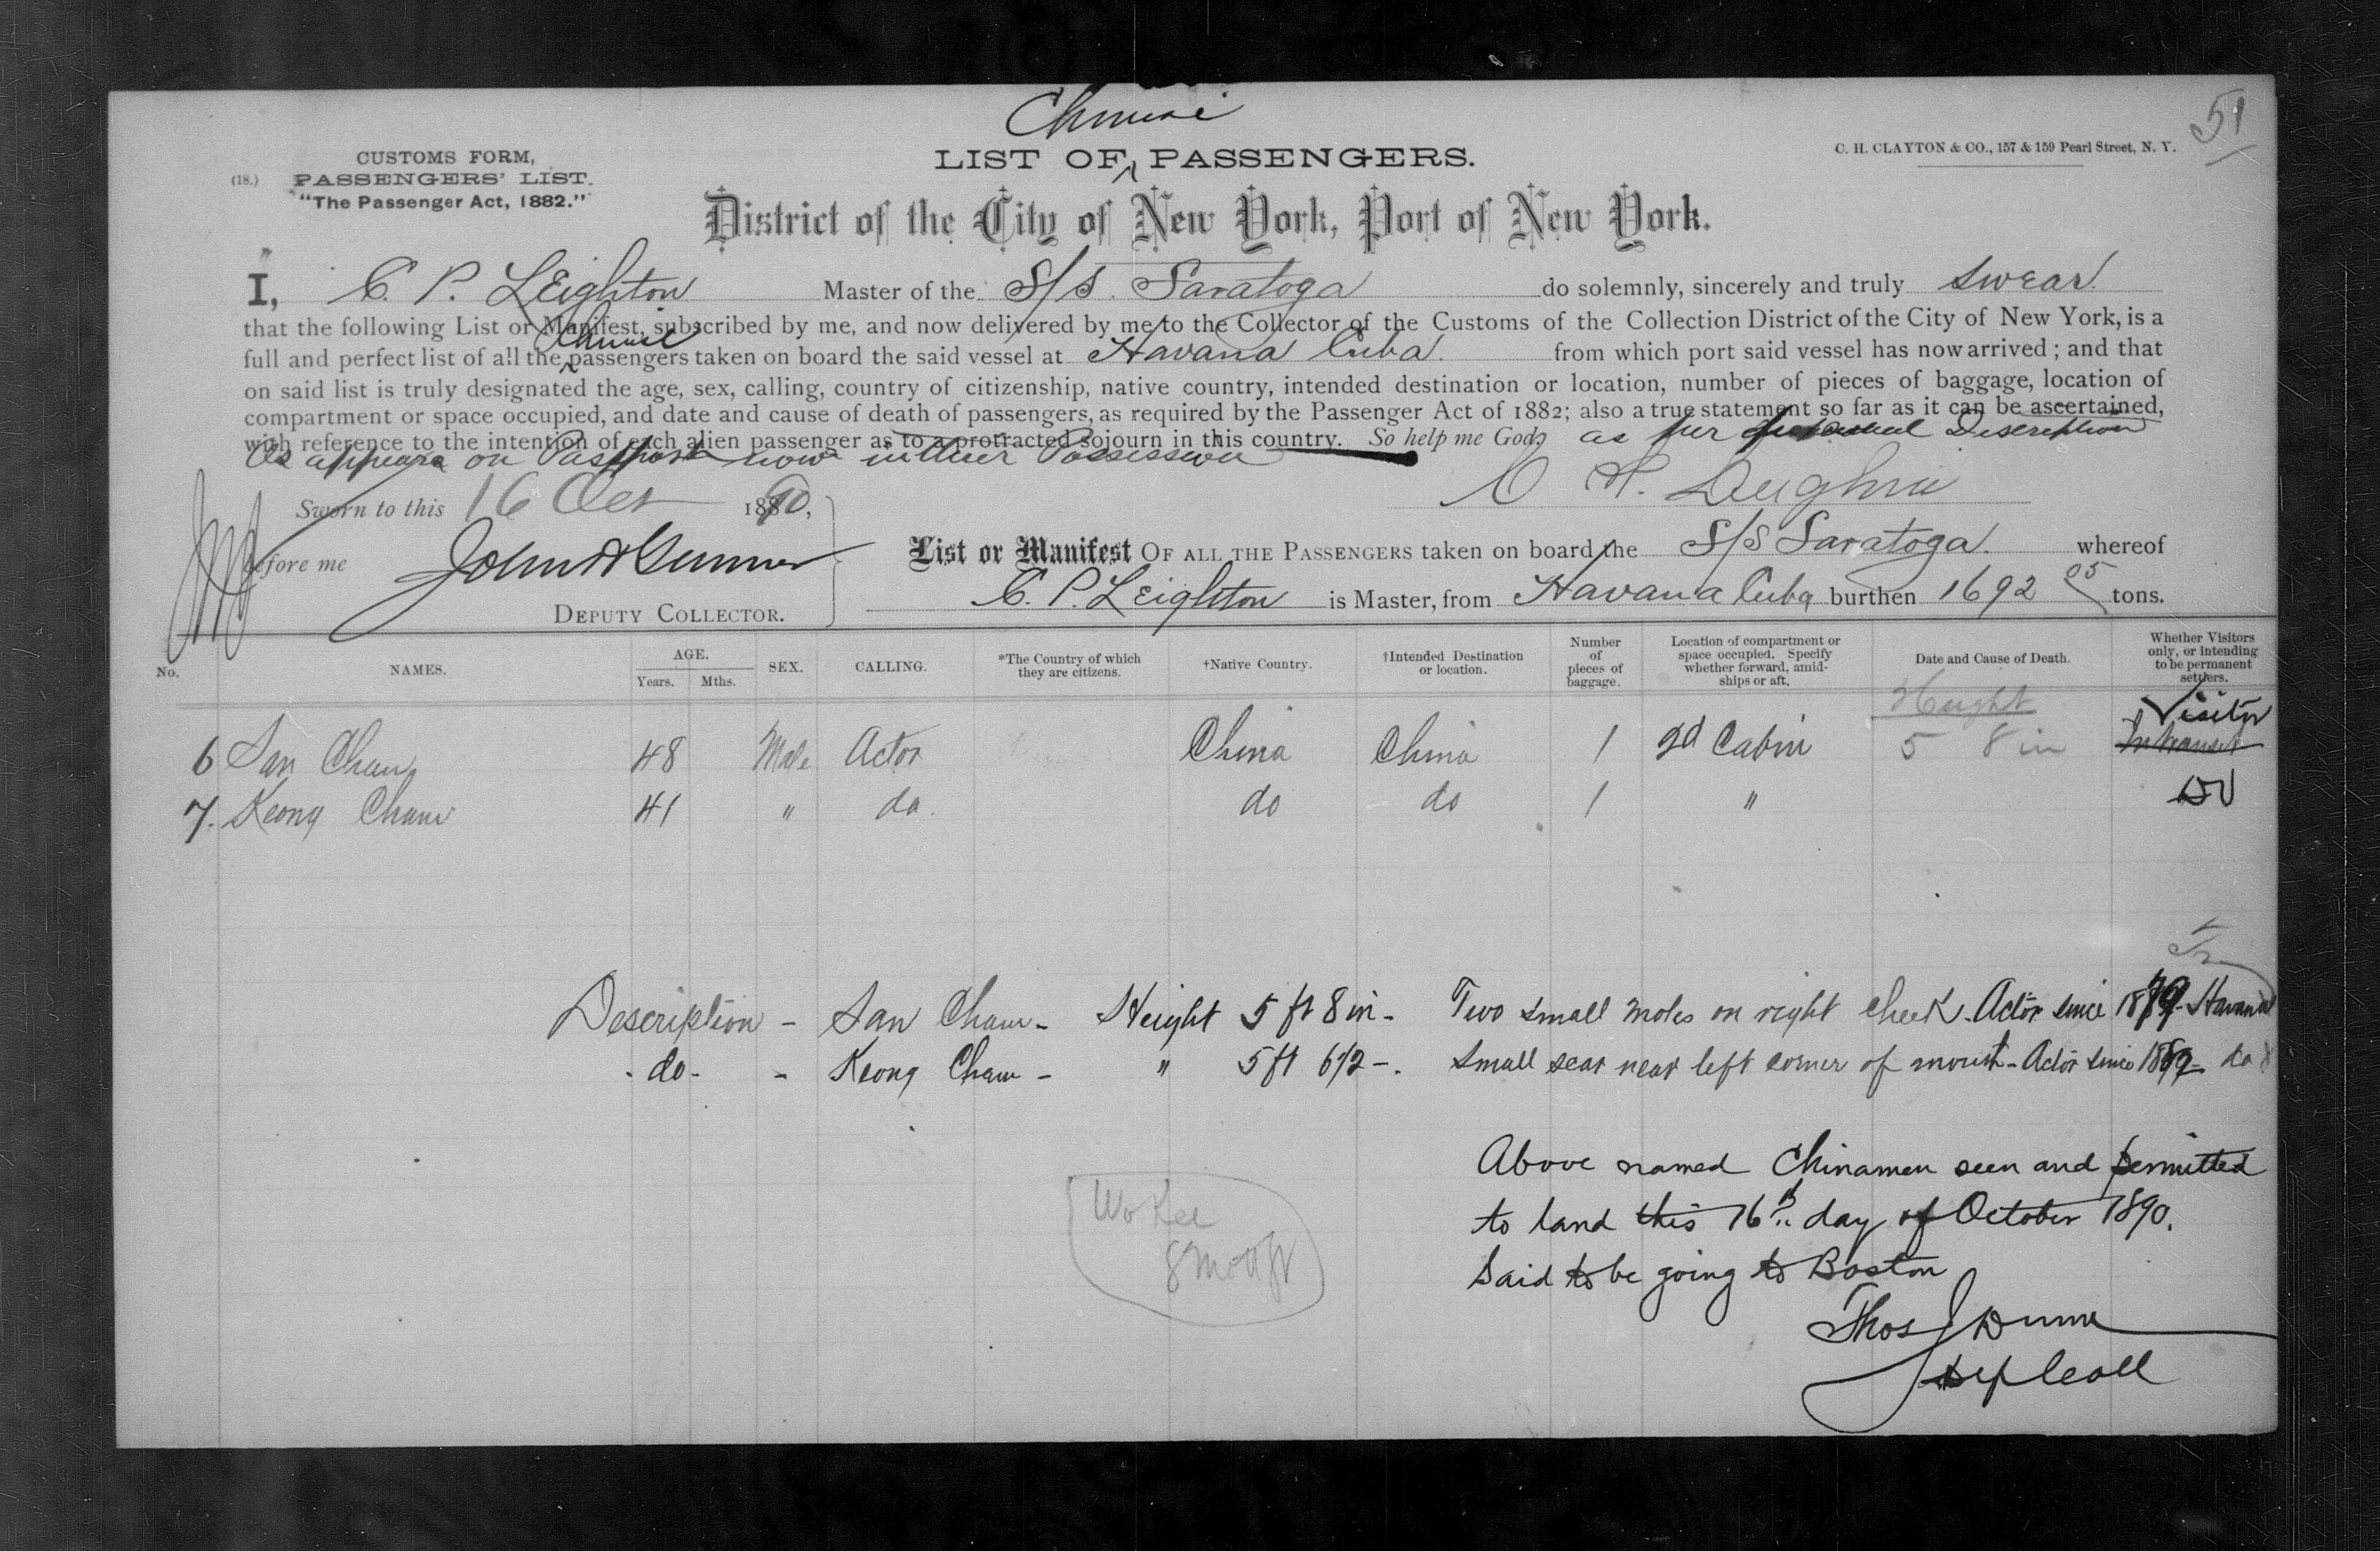 51
Chinese
CUSTOMS FORM,
(18.) PASSENGERS' LIST.
"The Passenger Act, 1882."
LIST OF ^ PASSENGERS.
C. H. CLAYTON & CO., 157 & 159 Pearl Street, N. Y.
District of the City of New York, Port of New York.
I, C. P. Leighton Master of the S/S. Saratoga do solemnly, sincerely and truly swear
that the following List or Manifest, subscribed by me, and now delivered by me to the Collector of the Customs of the Collection District of the City of New York, is a
Chinese
full and perfect list of all the ^ passengers taken on board the said vessel at Havana Cuba. from which port said vessel has now arrived; and that
on said list is truly designated the age, sex, calling, country of citizenship, native country, intended destination or location, number of pieces of baggage, location of
compartment or space occupied, and date and cause of death of passengers, as required by the Passenger Act of 1882; also a true statement so far as it can be ascertained,
with reference to the intention of each alien passenger as to a protracted sojourn in this country. So help me God, as per personal Description
As appears on Passport now in their Possession
Sworn to this 16 Oct 1890,
before me
DEPUTY COLLECTOR.
List or Manifest OF ALL THE PASSENGERS taken on board the S/S Saratoga. whereof
C. P. Leighton is Master, from Havana Cuba burthen 1692 05 tons.
No. NAMES. AGE. Years. Mths. SEX. CALLING. *The Country of which they are citizens. †Native Country. †Intended Destination or location. Number of pieces of baggage. Location of compartment or space occupied. Specify whether forward, amidships or aft. Date and Cause of Death. Whether Visitors only, or intending to be permanent settlers.
Height Visitor
6 San Chaw 48 Male Actor China China 1 2d Cabin 5 8 in In transit
7. Keong Chaw 41 " do. do do 1 " do
Description - San Chaw - Height 5 ft 8 in - Two small moles on right cheek. Actor since 1879 - Havana
- do - - Keong Chaw - " 5 ft 6 1/2 -. Small scar near left corner of mouth - Actor since 1882 - do
Above named Chinamen seen and permitted
to land this 16th day of October 1890.
Said to be going to Boston
Wo Kee
8 Mott St
Thos J Dunn
Dep Coll